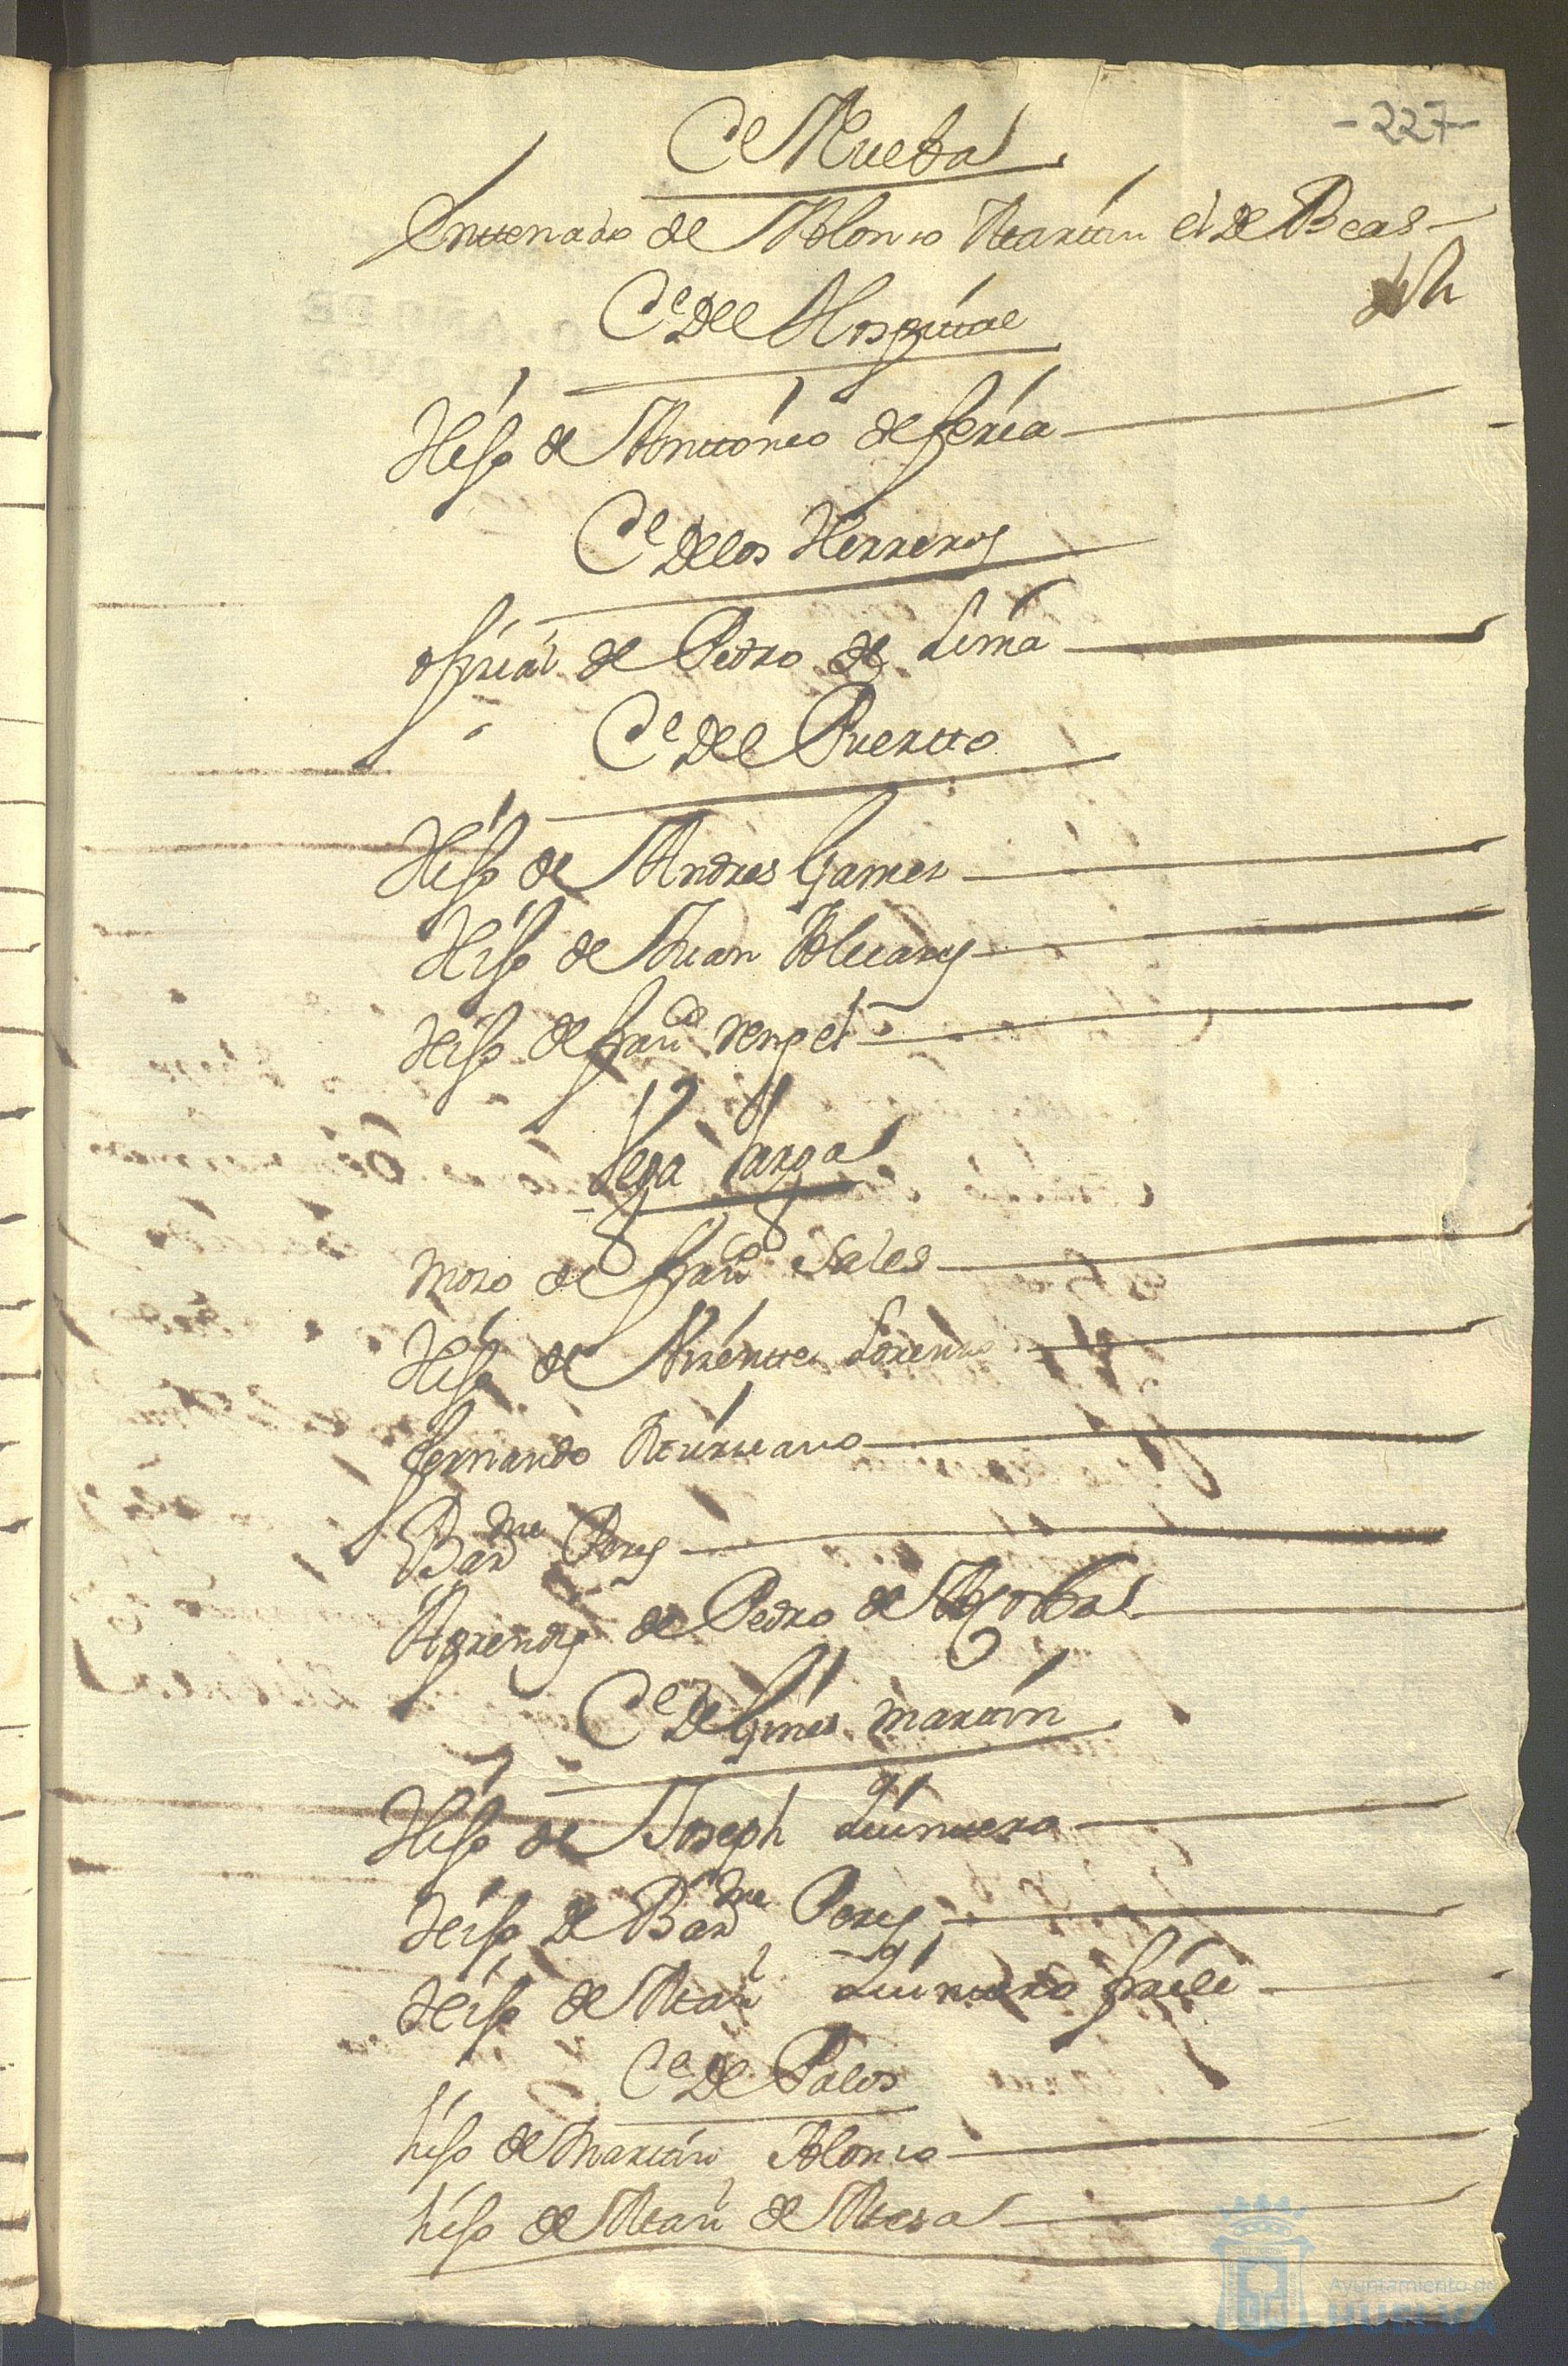 -227-
Ce Nueba
Enttenado de Alonso Martin el de Beas
Ce Del Hospittal
Hijo de Anttonio de feria
Ce De los Herreros
ofizial de Pedro de Lima
Ce Del Puertto
Hijo de Andres Gamez
Hijo de Juan Alvares
Hijo de franco rengel
Vega Larga
mozo de franco Sales
Hijo de Vizente Lorenzo
fernando
Barme Peres
Aprendis de Pedro de
Ce De Gines marttin
Hijo de Joseph Quinttero
Hijo de Barme Peres
Hijo de Manl Quinttero fraile
Ce De Palos
hijo de Martin Alonso
hijo de Manl de Mesa
Ayuntamiento de
HUELVA